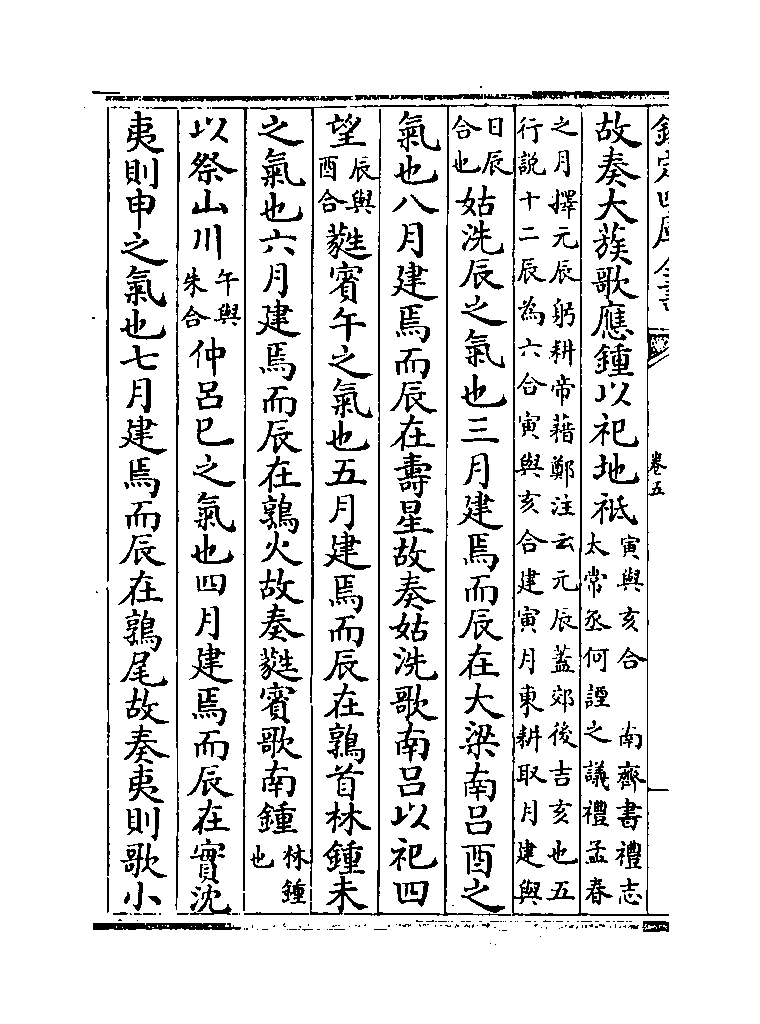 欽定四庫全書 卷五
故奏大蔟歌應鍾以祀地祇寅與亥合 南齊書禮志太常丞何諲之議禮孟春
之月擇元辰躬耕帝藉鄭注云元辰蓋郊後吉亥也五
行説十二辰為六合寅與亥合建寅月東耕取月建與
日辰合也姑洗辰之氣也三月建焉而辰在大梁南呂酉之
氣也八月建焉而辰在壽星故奏姑洗歌南呂以祀四
望辰與酉合蕤賓午之氣也五月建焉而辰在鶉首林鍾未
之氣也六月建焉而辰在鶉火故奏蕤賓歌南鍾林鍾也
以祭山川午與朱合仲呂巳之氣也四月建焉而辰在實沈
夷則申之氣也七月建焉而辰在鶉尾故奏夷則歌小